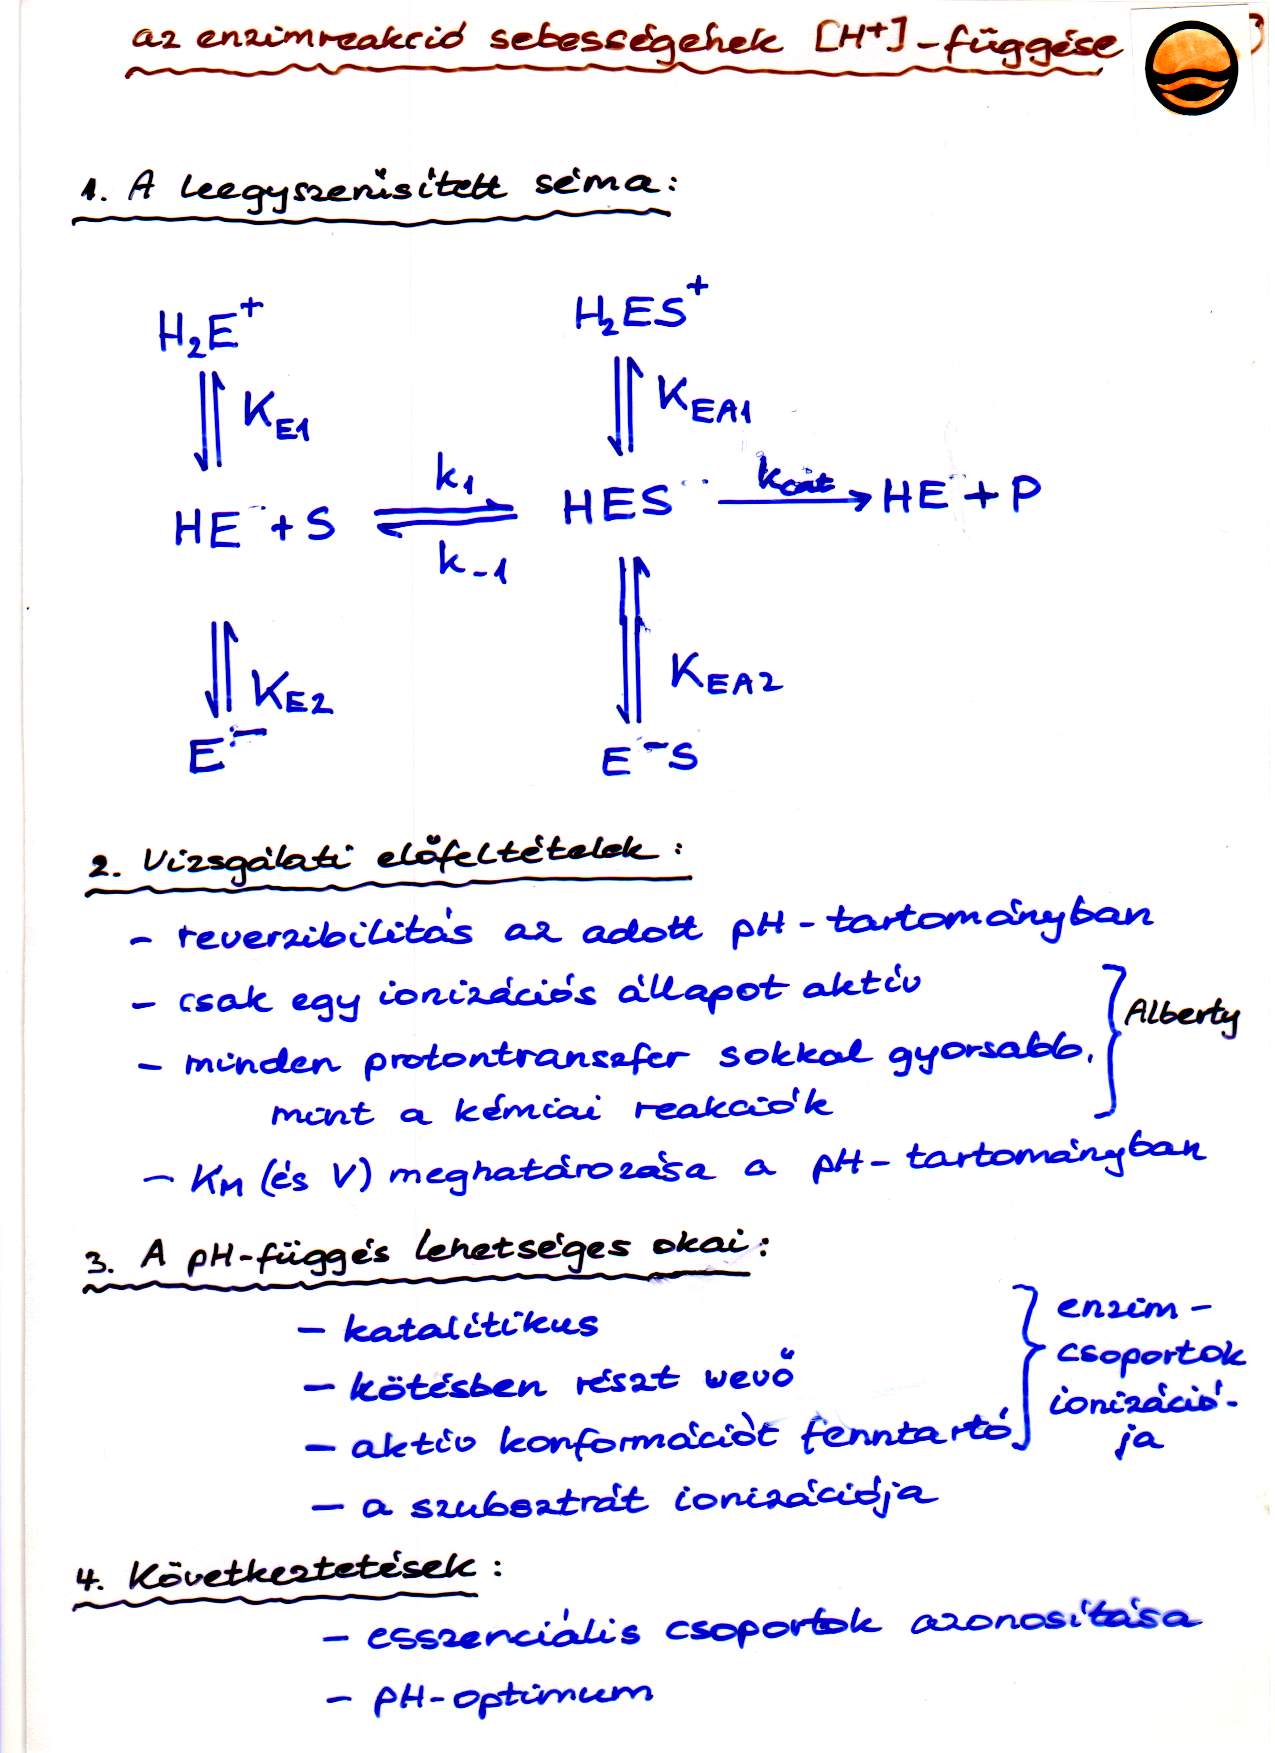 az enzimreakció sebességének [H⁺]-függése
1. A leegyszerűsített séma:
H₂E⁺ H₂ES⁺
K_E1 K_EA1
k₁ k_cat
HE + S HES HE + P
k₋₁
K_E2 K_EA2
E⁻ E⁻S
2. Vizsgálati előfeltételek:
- reverzibilitás az adott pH-tartományban
- csak egy ionizációs állapot aktív
Alberty
- minden protontranszfer sokkal gyorsabb,
mint a kémiai reakciók
- K_M (és V) meghatározása a pH-tartományban
3. A pH-függés lehetséges okai:
- katalitikus
- kötésben részt vevő
- aktív konformációt fenntartó
enzim-
csoportok
ionizáció-
ja
- a szubsztrát ionizációja
4. Következtetések:
- esszenciális csoportok azonosítása
- pH-optimum